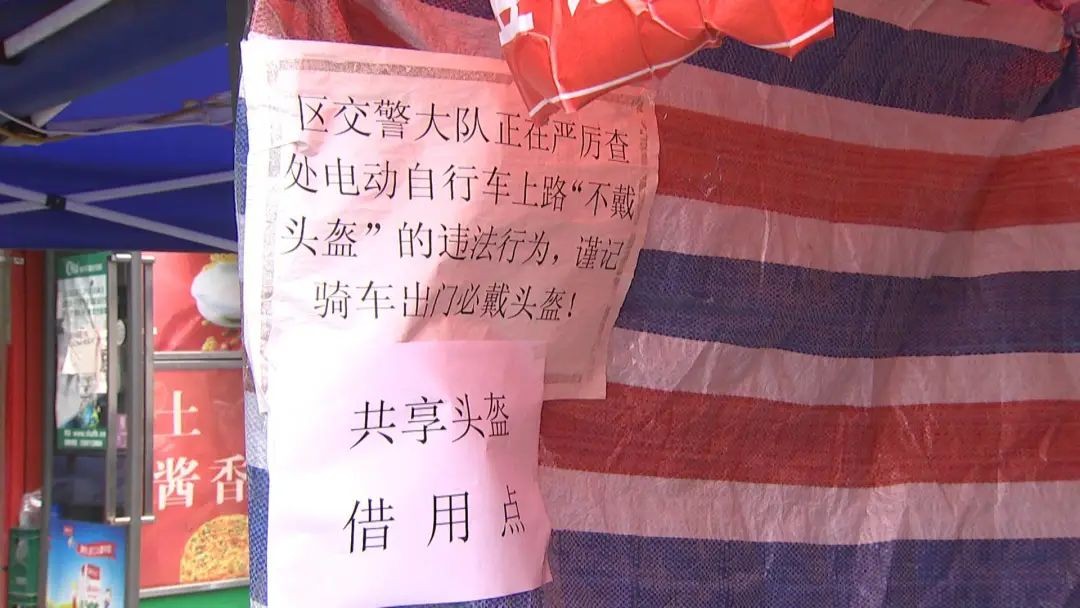 区交警大队正在严厉查
处电动自行车上路“不戴
头盔”的违法行为，谨记
骑车出门必戴头盔！
共享头盔
借用点
士
酱香